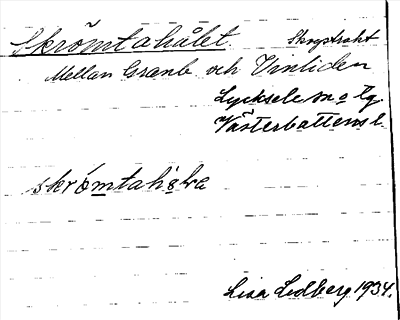 Skrömtahålet Skogstrakt
Mellan Granb. och Vinliden
Lycksele sn o tg
Västerbottens l.
skrömtahåla
Lisa Lidberg 1934.